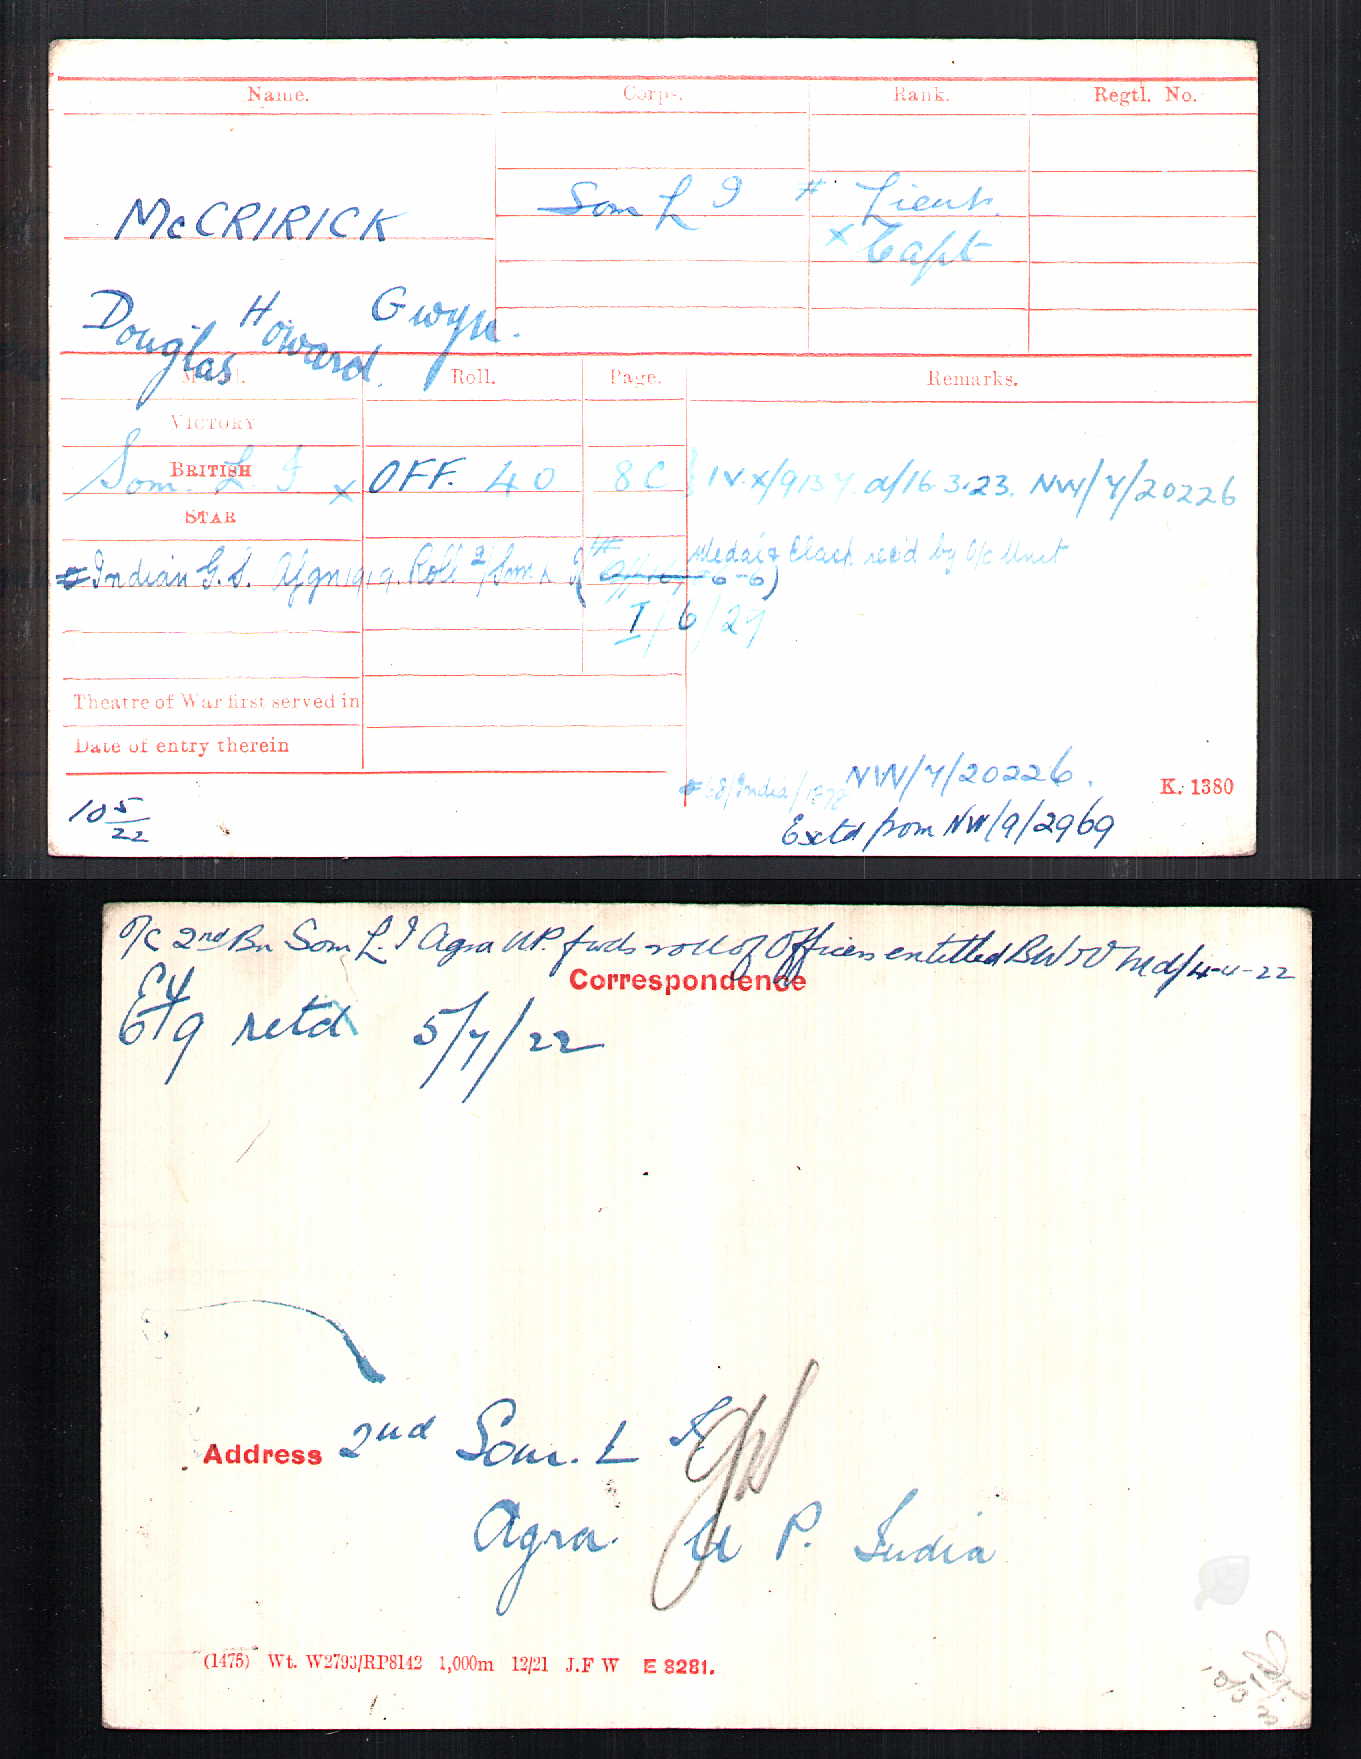 Name. Corps. Rank. Regtl. No.
McCRIRICK Som L I # Lieut.
x Capt
Douglas Howard Gwyn.
Medal. Roll. Page. Remarks.
VICTORY
BRITISH
Som. L. I x OFF. 40 8C } IV.X/9137. d/16.3.23. NW/7/20226
STAR
# Indian G.S. Afgn 1919. Roll 2/Som L I Medal & Clasp rec'd by O/c Unit
I/6/29
Theatre of War first served in
Date of entry therein
# 68/India/1878 NW/7/20226.
K. 1380
10 5/22
Extd from NW/9/2969
O/C 2nd Bn Som L. I Agra U.P. fwds roll of Officers entitled BW & V Md/4-4-22
Correspondence
retd 5/7/22
Address 2nd Som. L I
Agra. U P. India
(1475) Wt. W2793/RP8142 1,000m 12/21 J.F W E 8281.